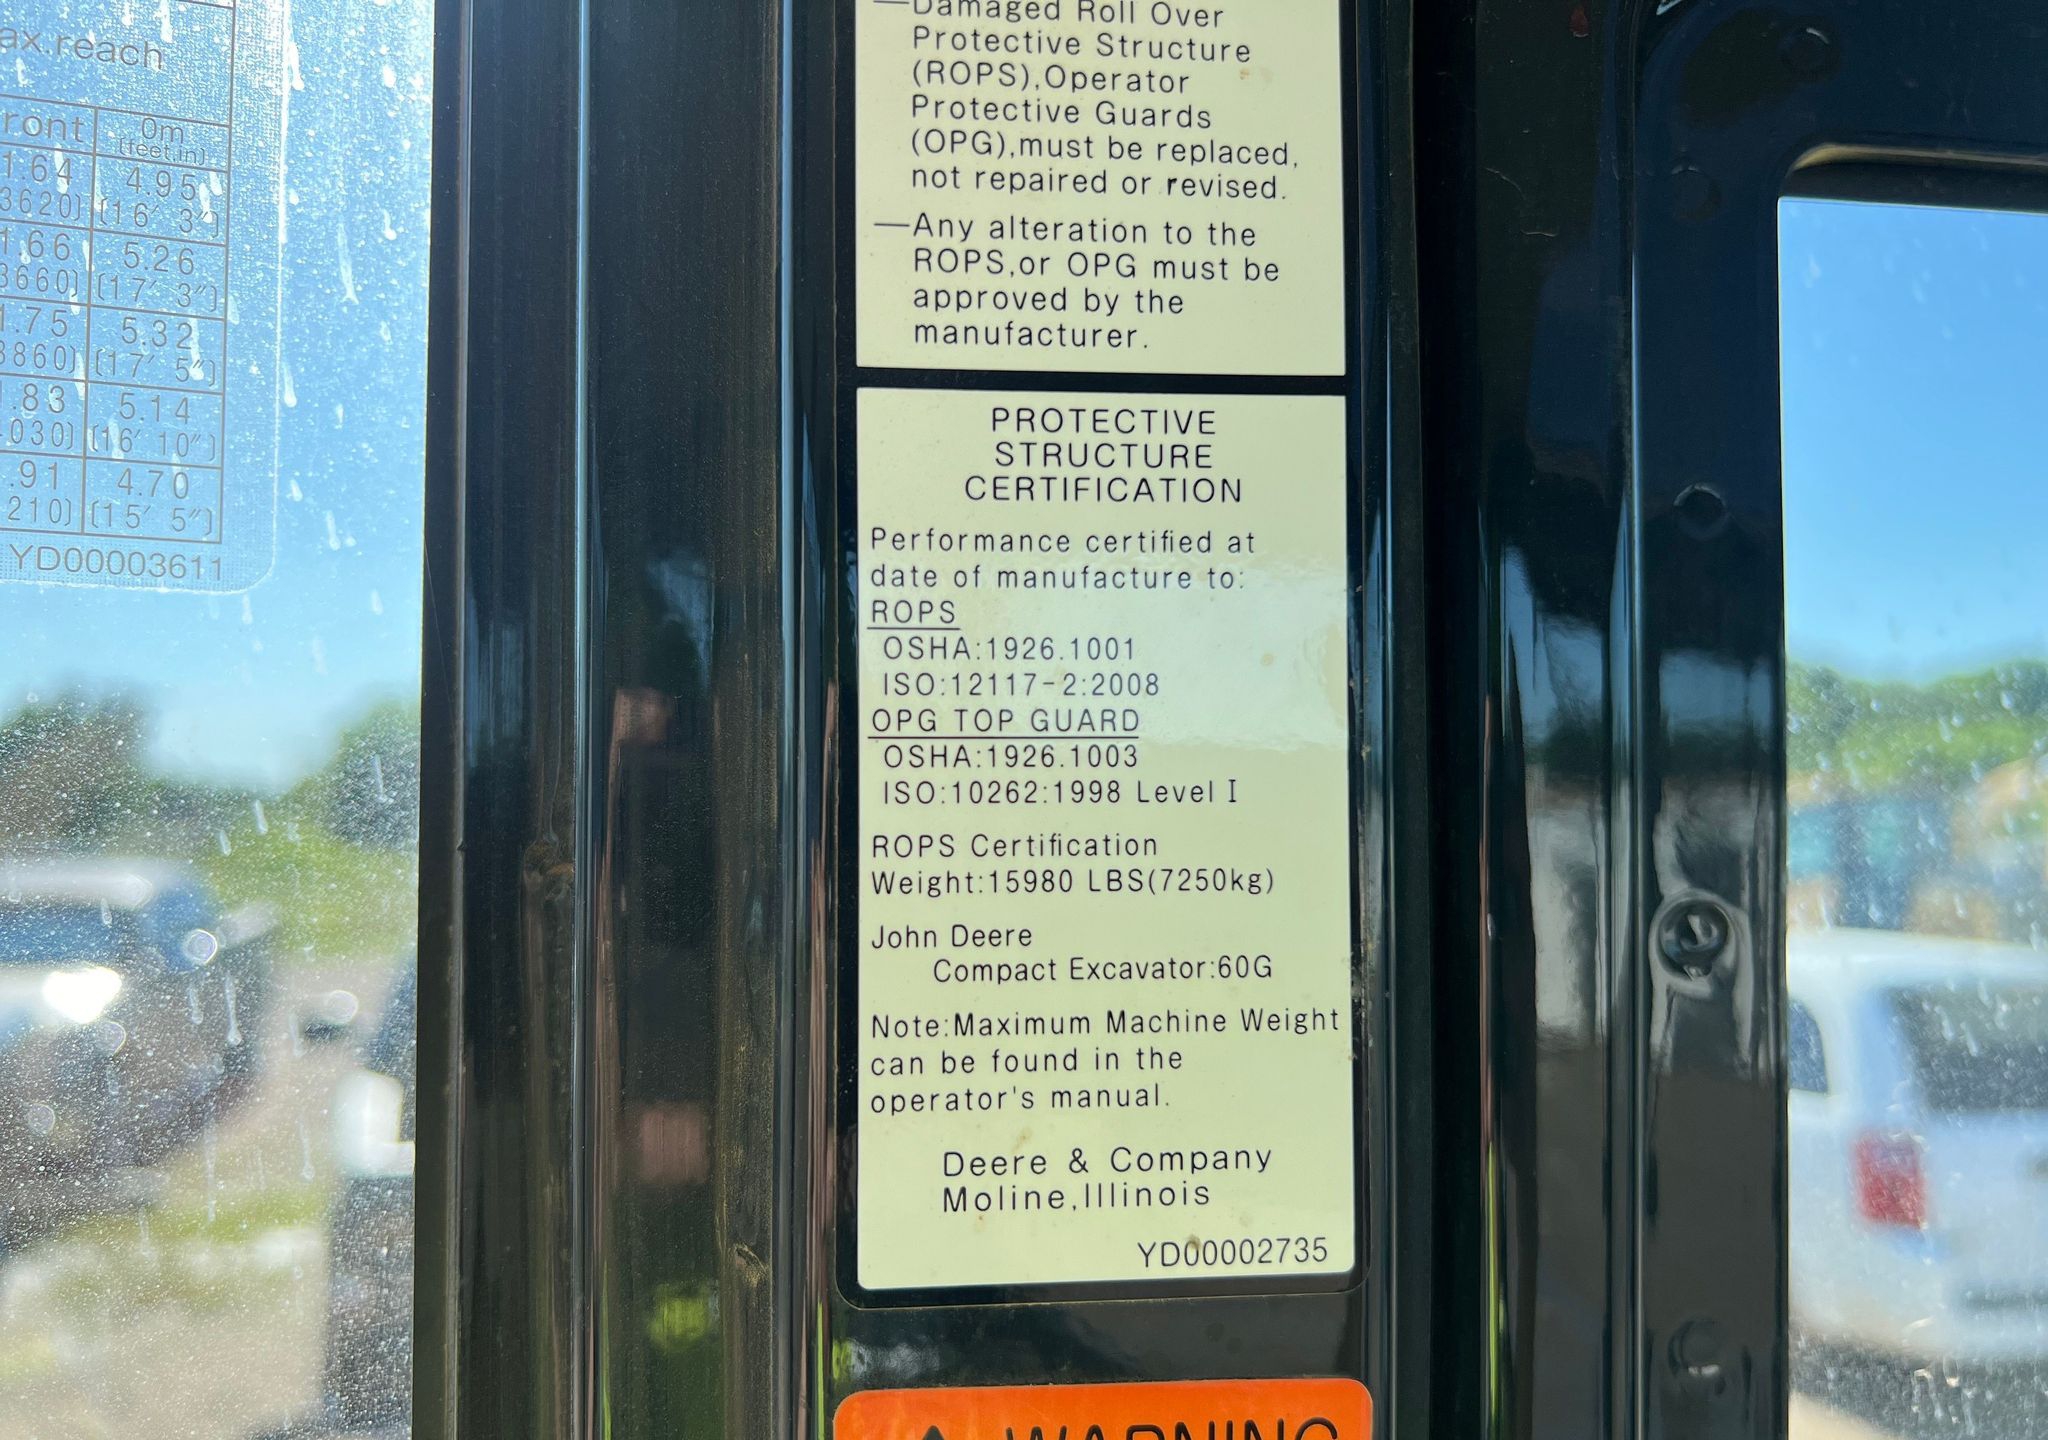 ax.reach
ront 0m
(feet.in)
1.64 4.95
3620) (16′ 3″)
1.66 5.26
3660) (17′ 3″)
1.75 5.32
3860) (17′ 5″)
.83 5.14
030) (16′ 10″)
.91 4.70
210) (15′ 5″)
YD00003611
—Damaged Roll Over
Protective Structure
(ROPS),Operator
Protective Guards
(OPG),must be replaced,
not repaired or revised.
—Any alteration to the
ROPS,or OPG must be
approved by the
manufacturer.
PROTECTIVE
STRUCTURE
CERTIFICATION
Performance certified at
date of manufacture to:
ROPS
OSHA:1926.1001
ISO:12117-2:2008
OPG TOP GUARD
OSHA:1926.1003
ISO:10262:1998 Level I
ROPS Certification
Weight:15980 LBS(7250kg)
John Deere
Compact Excavator:60G
Note:Maximum Machine Weight
can be found in the
operator's manual.
Deere & Company
Moline,Illinois
YD00002735
WARNING